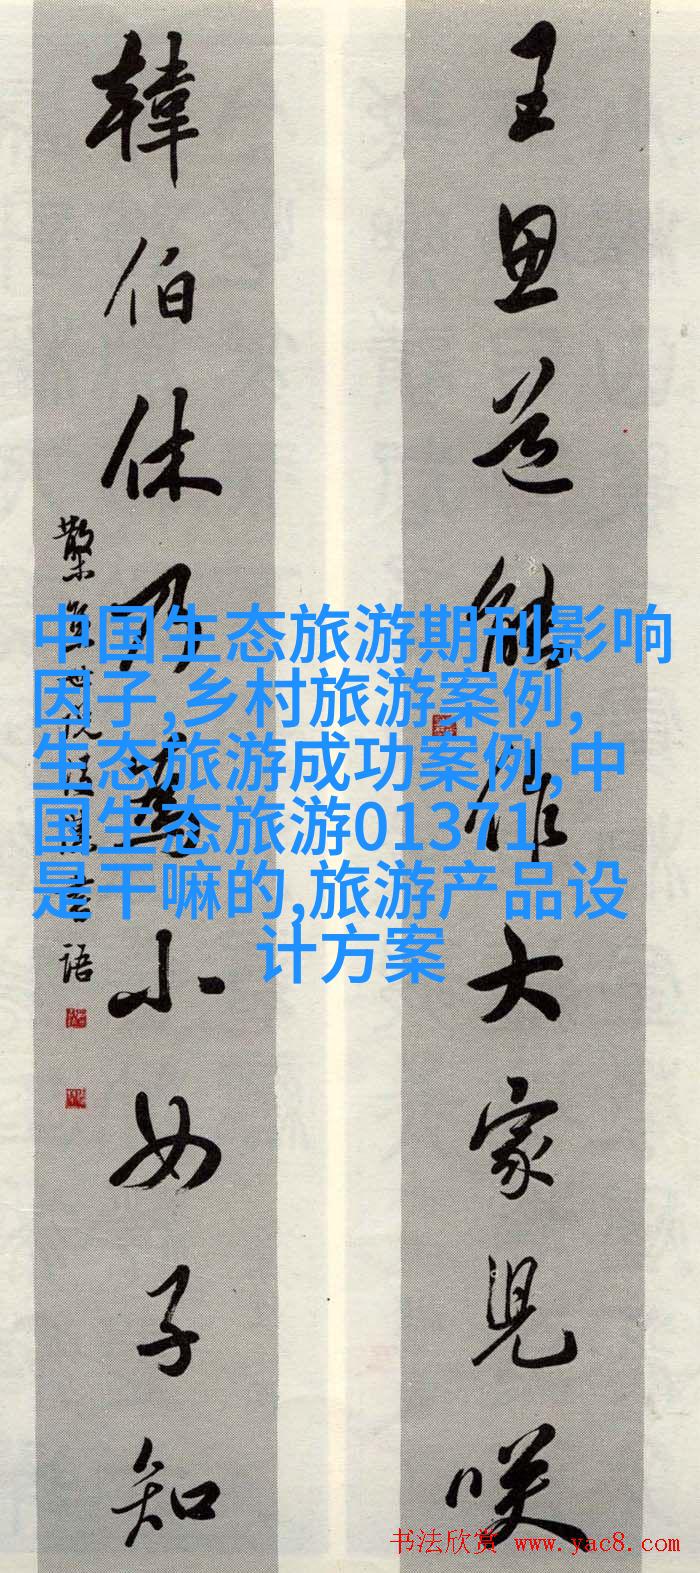 王思道能作大家兒咲
韓伯休乃小女子知
中国生态旅游期刊影响
因子,乡村旅游案例,
生态旅游成功案例,中
国生态旅游01371
是干嘛的,旅游产品设
计方案
书法欣赏 www.yac8.com